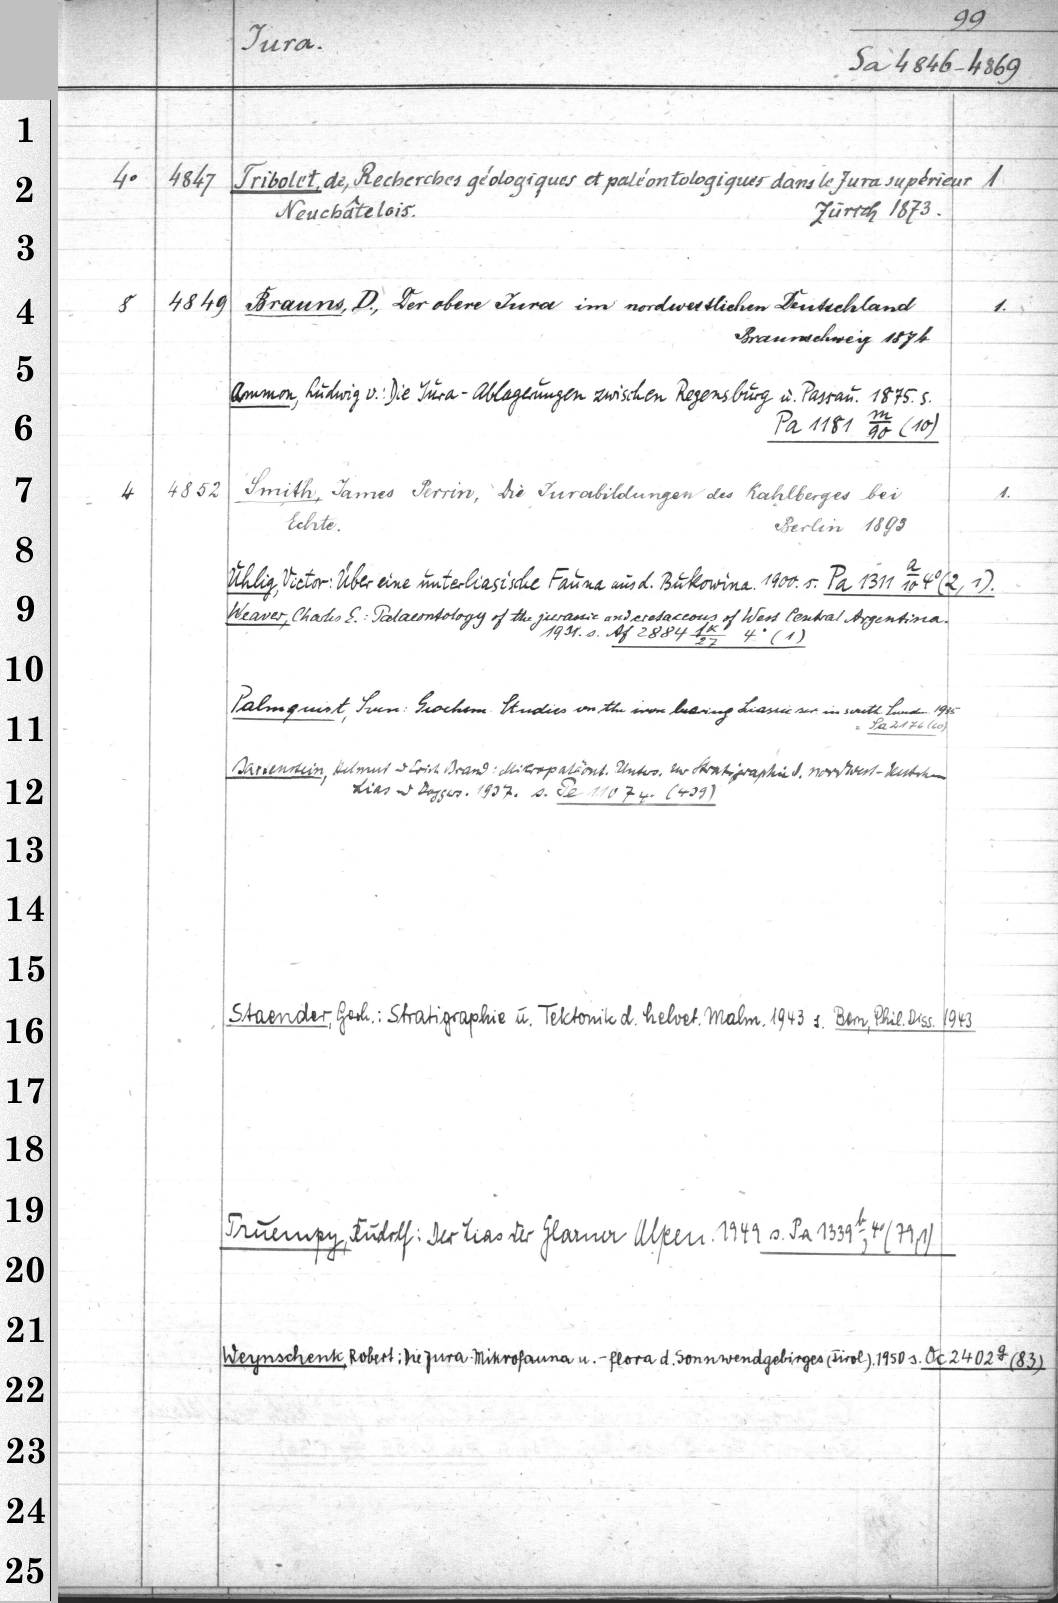 99
Jura.
Sa 4846-4869
1
2
3
4
5
6
7
8
9
10
11
12
13
14
15
16
17
18
19
20
21
22
23
24
25
4° 4847 Tribolet, de, Recherches géologiques et paléontologiques dans le Jura supérieur 1
Neuchâtelois. Zürich 1873.
8 4849 Brauns, D., Der obere Jura im nordwestlichen Deutschland 1.
Braunschweig 1874
Ammon, Ludwig v.: Die Jura-Ablagerungen zwischen Regensburg u. Passau. 1875. s.
Pa 1181 m/90 (10)
4 4852 Smith, James Perrin, Die Jurabildungen des Kahlberges bei 1.
Echte. Berlin 1893
Uhlig, Victor: Über eine unterliasische Fauna aus d. Bukowina. 1900. s. Pa 1311 a/10 4° (2, 1).
Weaver, Charles E.: Palaeontology of the jurassic and cretaceous of West Central Argentina.
1931. s. Af 2884 1k/27 4° (1)
Palmquist, Sven: Geochem. Studies on the iron bearing Liassic ser. in south 1935
Sa 2176 (60)
Bartenstein, Helmut u Erich Brand: Mikropaläont. Unters. zur Stratigraphie d. nordwest-deutschen
Lias u Dogger. 1937. s. Pe 11074. (439)
Staender, Gerh.: Stratigraphie u. Tektonik d. helvet. Malm. 1943 s. Bern, Phil. Diss. 1943
Truempy, Rudolf: Der Lias der Glarner Alpen. 1949 s. Pa 1339 4° (79,1)
Weynschenk, Robert: Die Jura-Mikrofauna u. -flora d. Sonnwendgebirges (Tirol). 1950 s. Oc 2402 g (83)